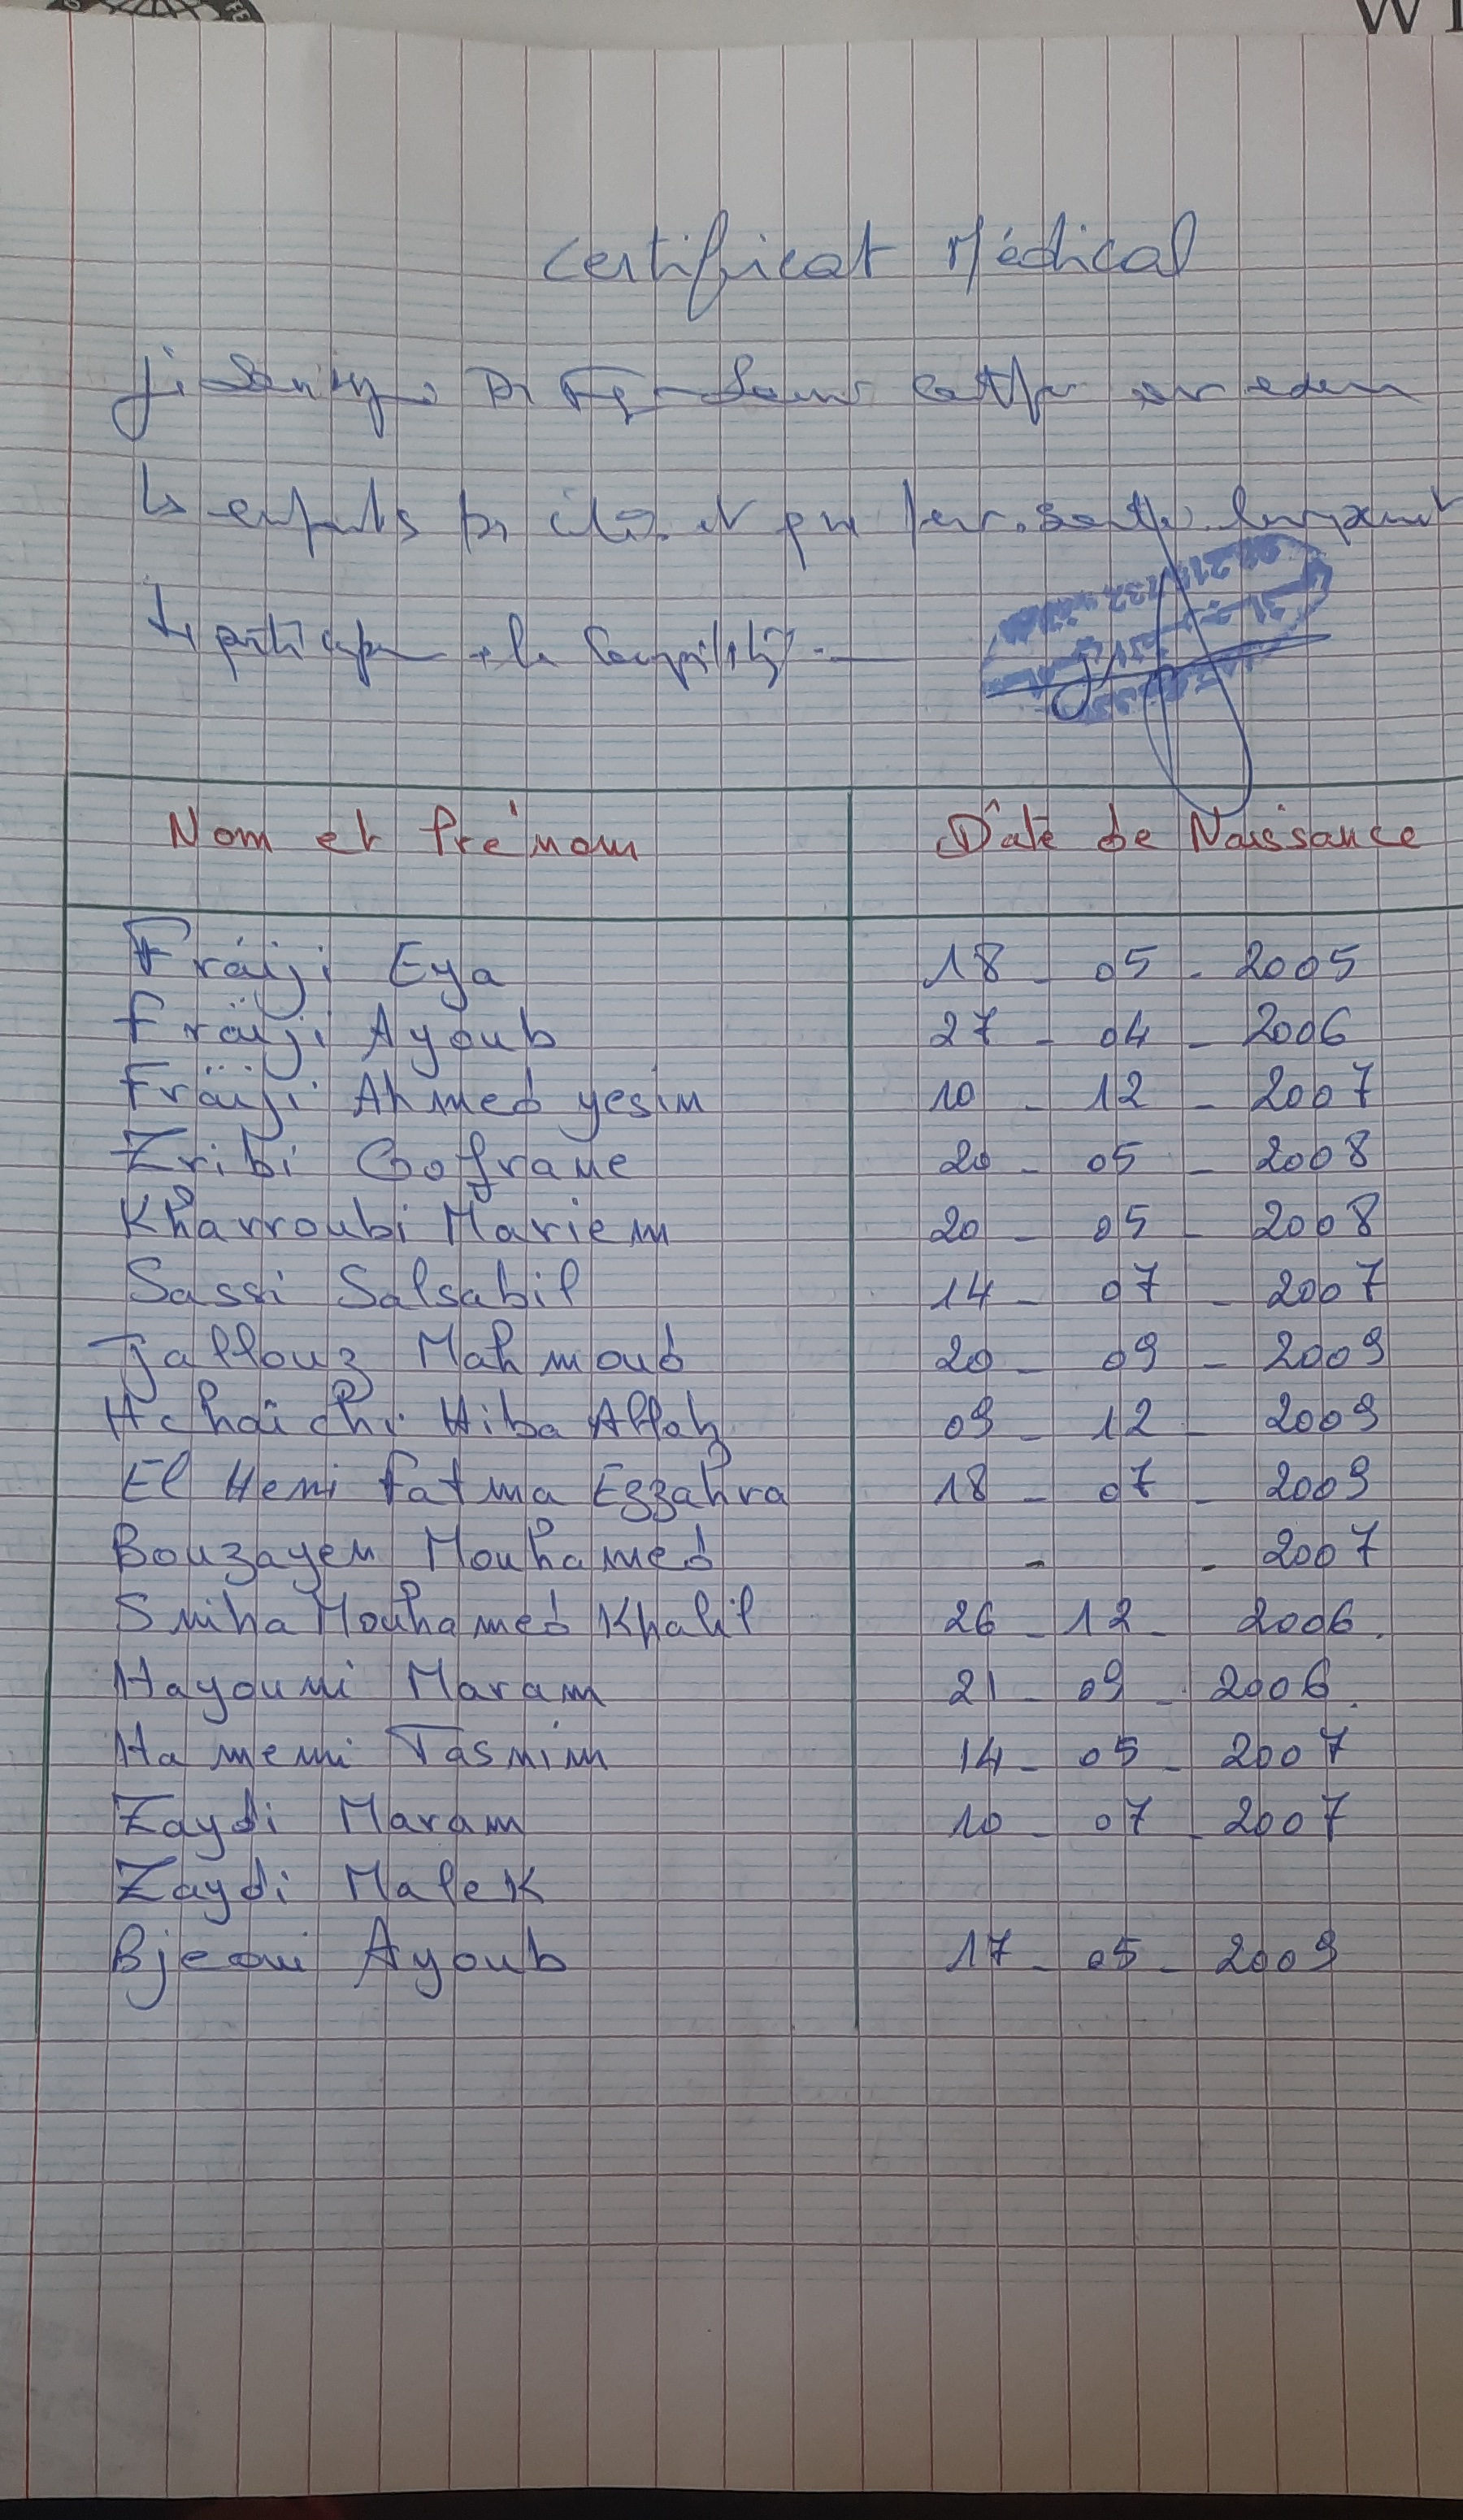 W
Certificat Médical
les enfants et que
participer à la
Nom et Prénom Dâte de Naissance
Fraïji Eya 18 - 05 - 2005
Fraïji Ayoub 27 - 04 - 2006
Fraïji Ahmed yesin 10 - 12 - 2007
Zribi Gofrane 20 - 05 - 2008
Kharroubi Mariem 20 - 05 - 2008
Sassi Salsabil 14 - 07 - 2007
Jallouz Mahmoud 20 - 09 - 2009
Hchaîchi Hiba Allah 09 - 12 - 2009
El Heni Fatma Ezzahra 18 - 07 - 2009
Bouzayen Mouhamed - - 2007
Smiha Mouhamed Khalil 26 - 12 - 2006.
Hayouni Maram 21 - 09 - 2006.
Hamemi Tasnim 14 - 05 - 2007
Zaydi Maram 10 - 07 - 2007
Zaydi Malek
Bjeoui Ayoub 17 - 05 - 2009